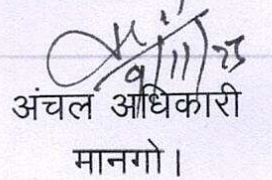 9/11/23
अंचल अधिकारी
मानगो।